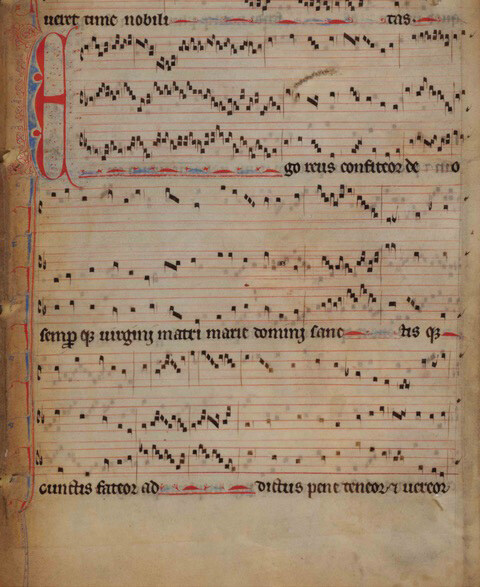 ueret time nobili tas.
Ego reus confiteor deo
semp qz uirgini matri marie domini sanc tis qz
cunctis fateor ad dictus pene teneor & uereor